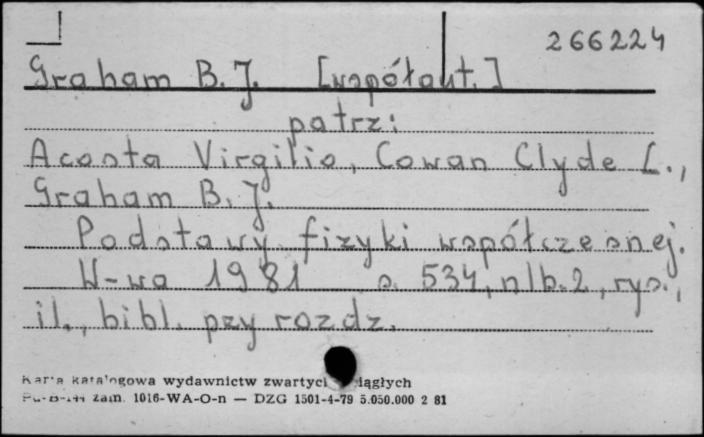 266224
Graham B. J. [współaut.]
patrz:
Acosta Virgilio, Cowan Clyde L.,
Graham B. J.
Podstawy fizyki współczesnej.
W-wa 1981 s. 534, nlb. 2, rys.,
il., bibl. przy rozdz.
Karta katalogowa wydawnictw zwartych
Pu-B-144 zam. 1016-WA-O-n — DZG 1501-4-79 5.050.000 2 81